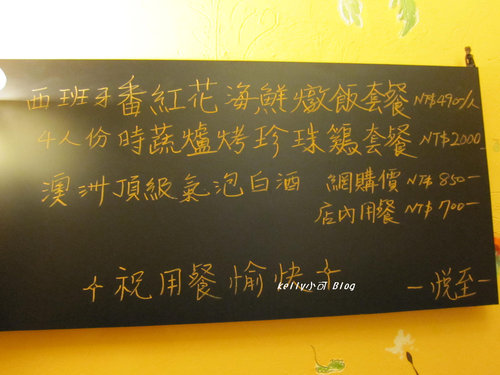 西班牙番紅花海鮮燉飯套餐 NT$490/人
4人份時蔬爐烤珍珠鷄套餐 NT$2000
澳洲頂級氣泡白酒 網購價 NT$850-
店內用餐 NT$700-
祝用餐愉快
kelly小可 Blog
-悅至-